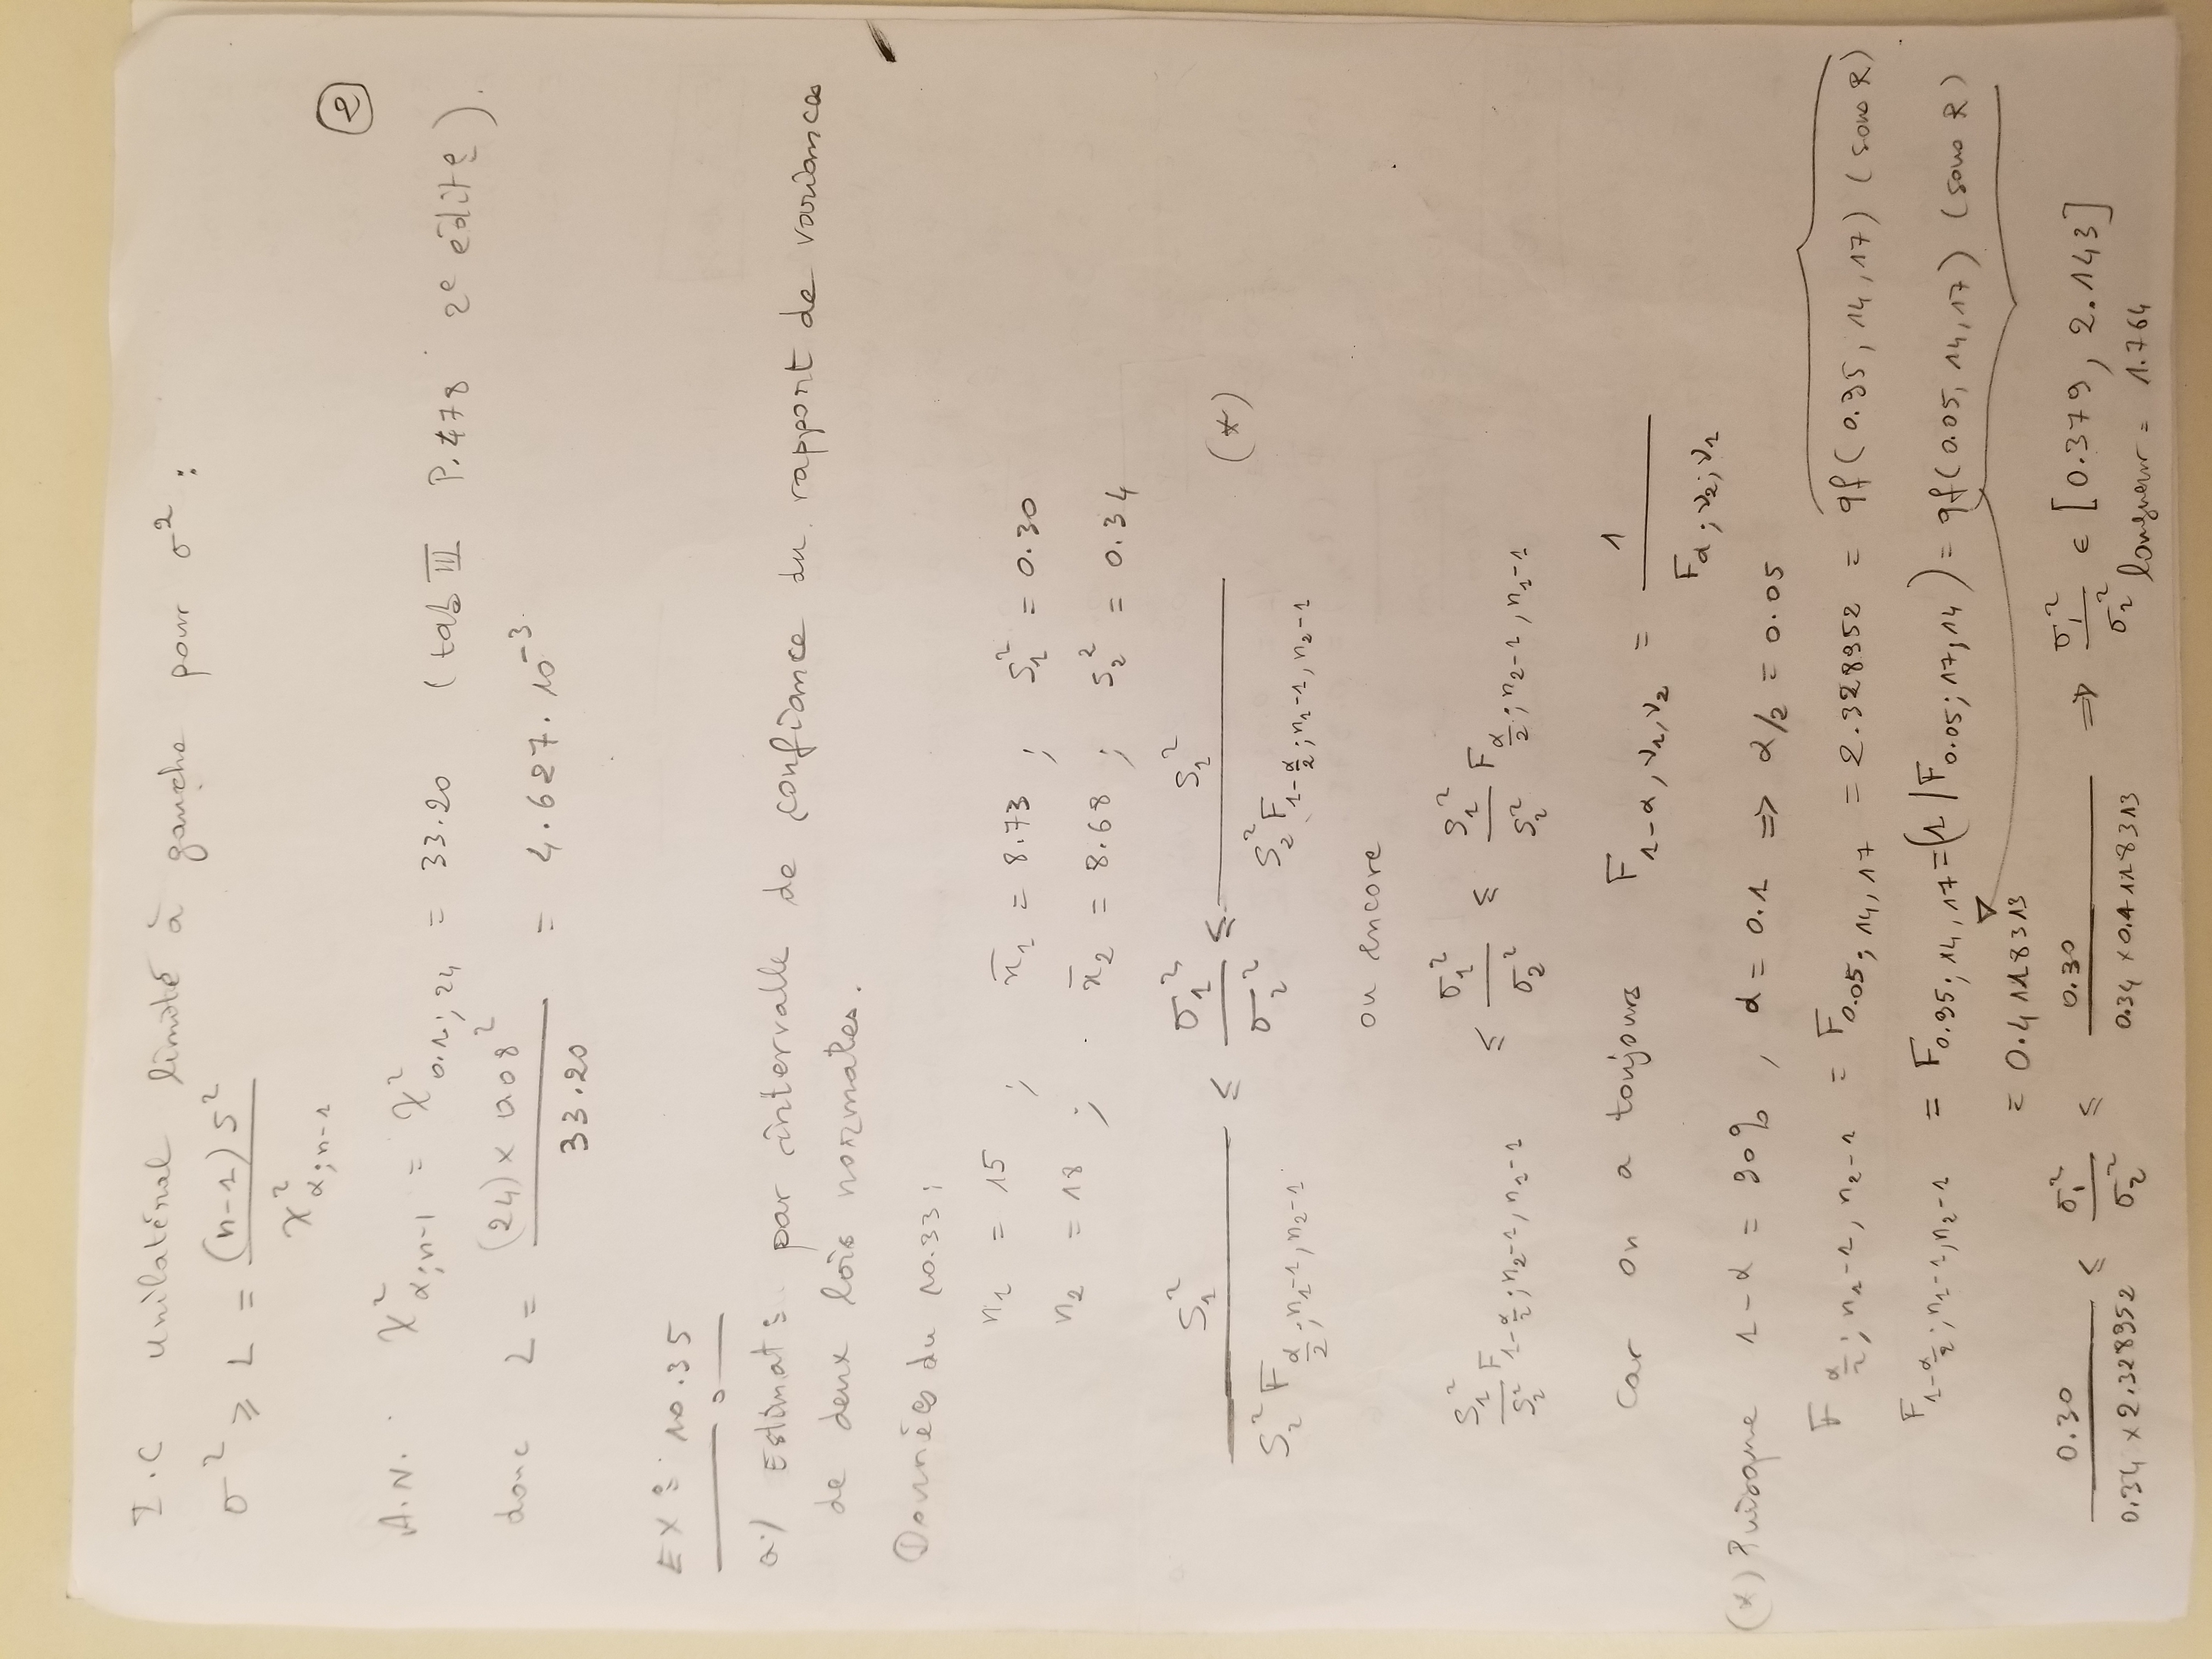 I.C unilatéral limité à gauche pour σ² :
σ² ≥ L = (n-1) S² / χ²_{α;n-1}
②
A.N. χ²_{α;n-1} = χ²_{0.1;24} = 33.20 (tab III P.478 2e édit°).
donc L = (24) × 0.08² / 33.20 = 4.627 . 10^{-3}
EX° 10.35
a.) Estimat° par intervalle de confiance du rapport de variances
de deux lois normales.
Données du 10.33 :
n₁ = 15 ; x̄₁ = 8.73 ; S₁² = 0.30
n₂ = 18 ; x̄₂ = 8.68 ; S₂² = 0.34
S₁² / (S₂² F_{α/2;n₁-1,n₂-1}) ≤ σ₁²/σ₂² ≤ S₁² / (S₂² F_{1-α/2;n₁-1,n₂-1}) (*)
ou encore
S₁²/S₂² F_{1-α/2;n₂-1,n₁-1} ≤ σ₁²/σ₂² ≤ S₁²/S₂² F_{α/2;n₂-1,n₁-1}
Car on a toujours F_{1-α,ν₁,ν₂} = 1 / F_{α;ν₂;ν₁}
(*) Puisque 1-α = 90% , α = 0.1 ⇒ α/2 = 0.05
F_{α/2;n₁-1,n₂-1} = F_{0.05;14,17} = 2.328952 = qf(0.95, 14, 17) (sous R)
F_{1-α/2;n₁-1,n₂-1} = F_{0.95;14,17} = (1/F_{0.05;17;14}) = qf(0.05, 14, 17) (sous R)
= 0.4118313
0.30 / (0.34 × 2.328952) ≤ σ₁²/σ₂² ≤ 0.30 / (0.34 × 0.4118313) ⇒ σ₁²/σ₂² ∈ [0.379, 2.143]
longueur = 1.764